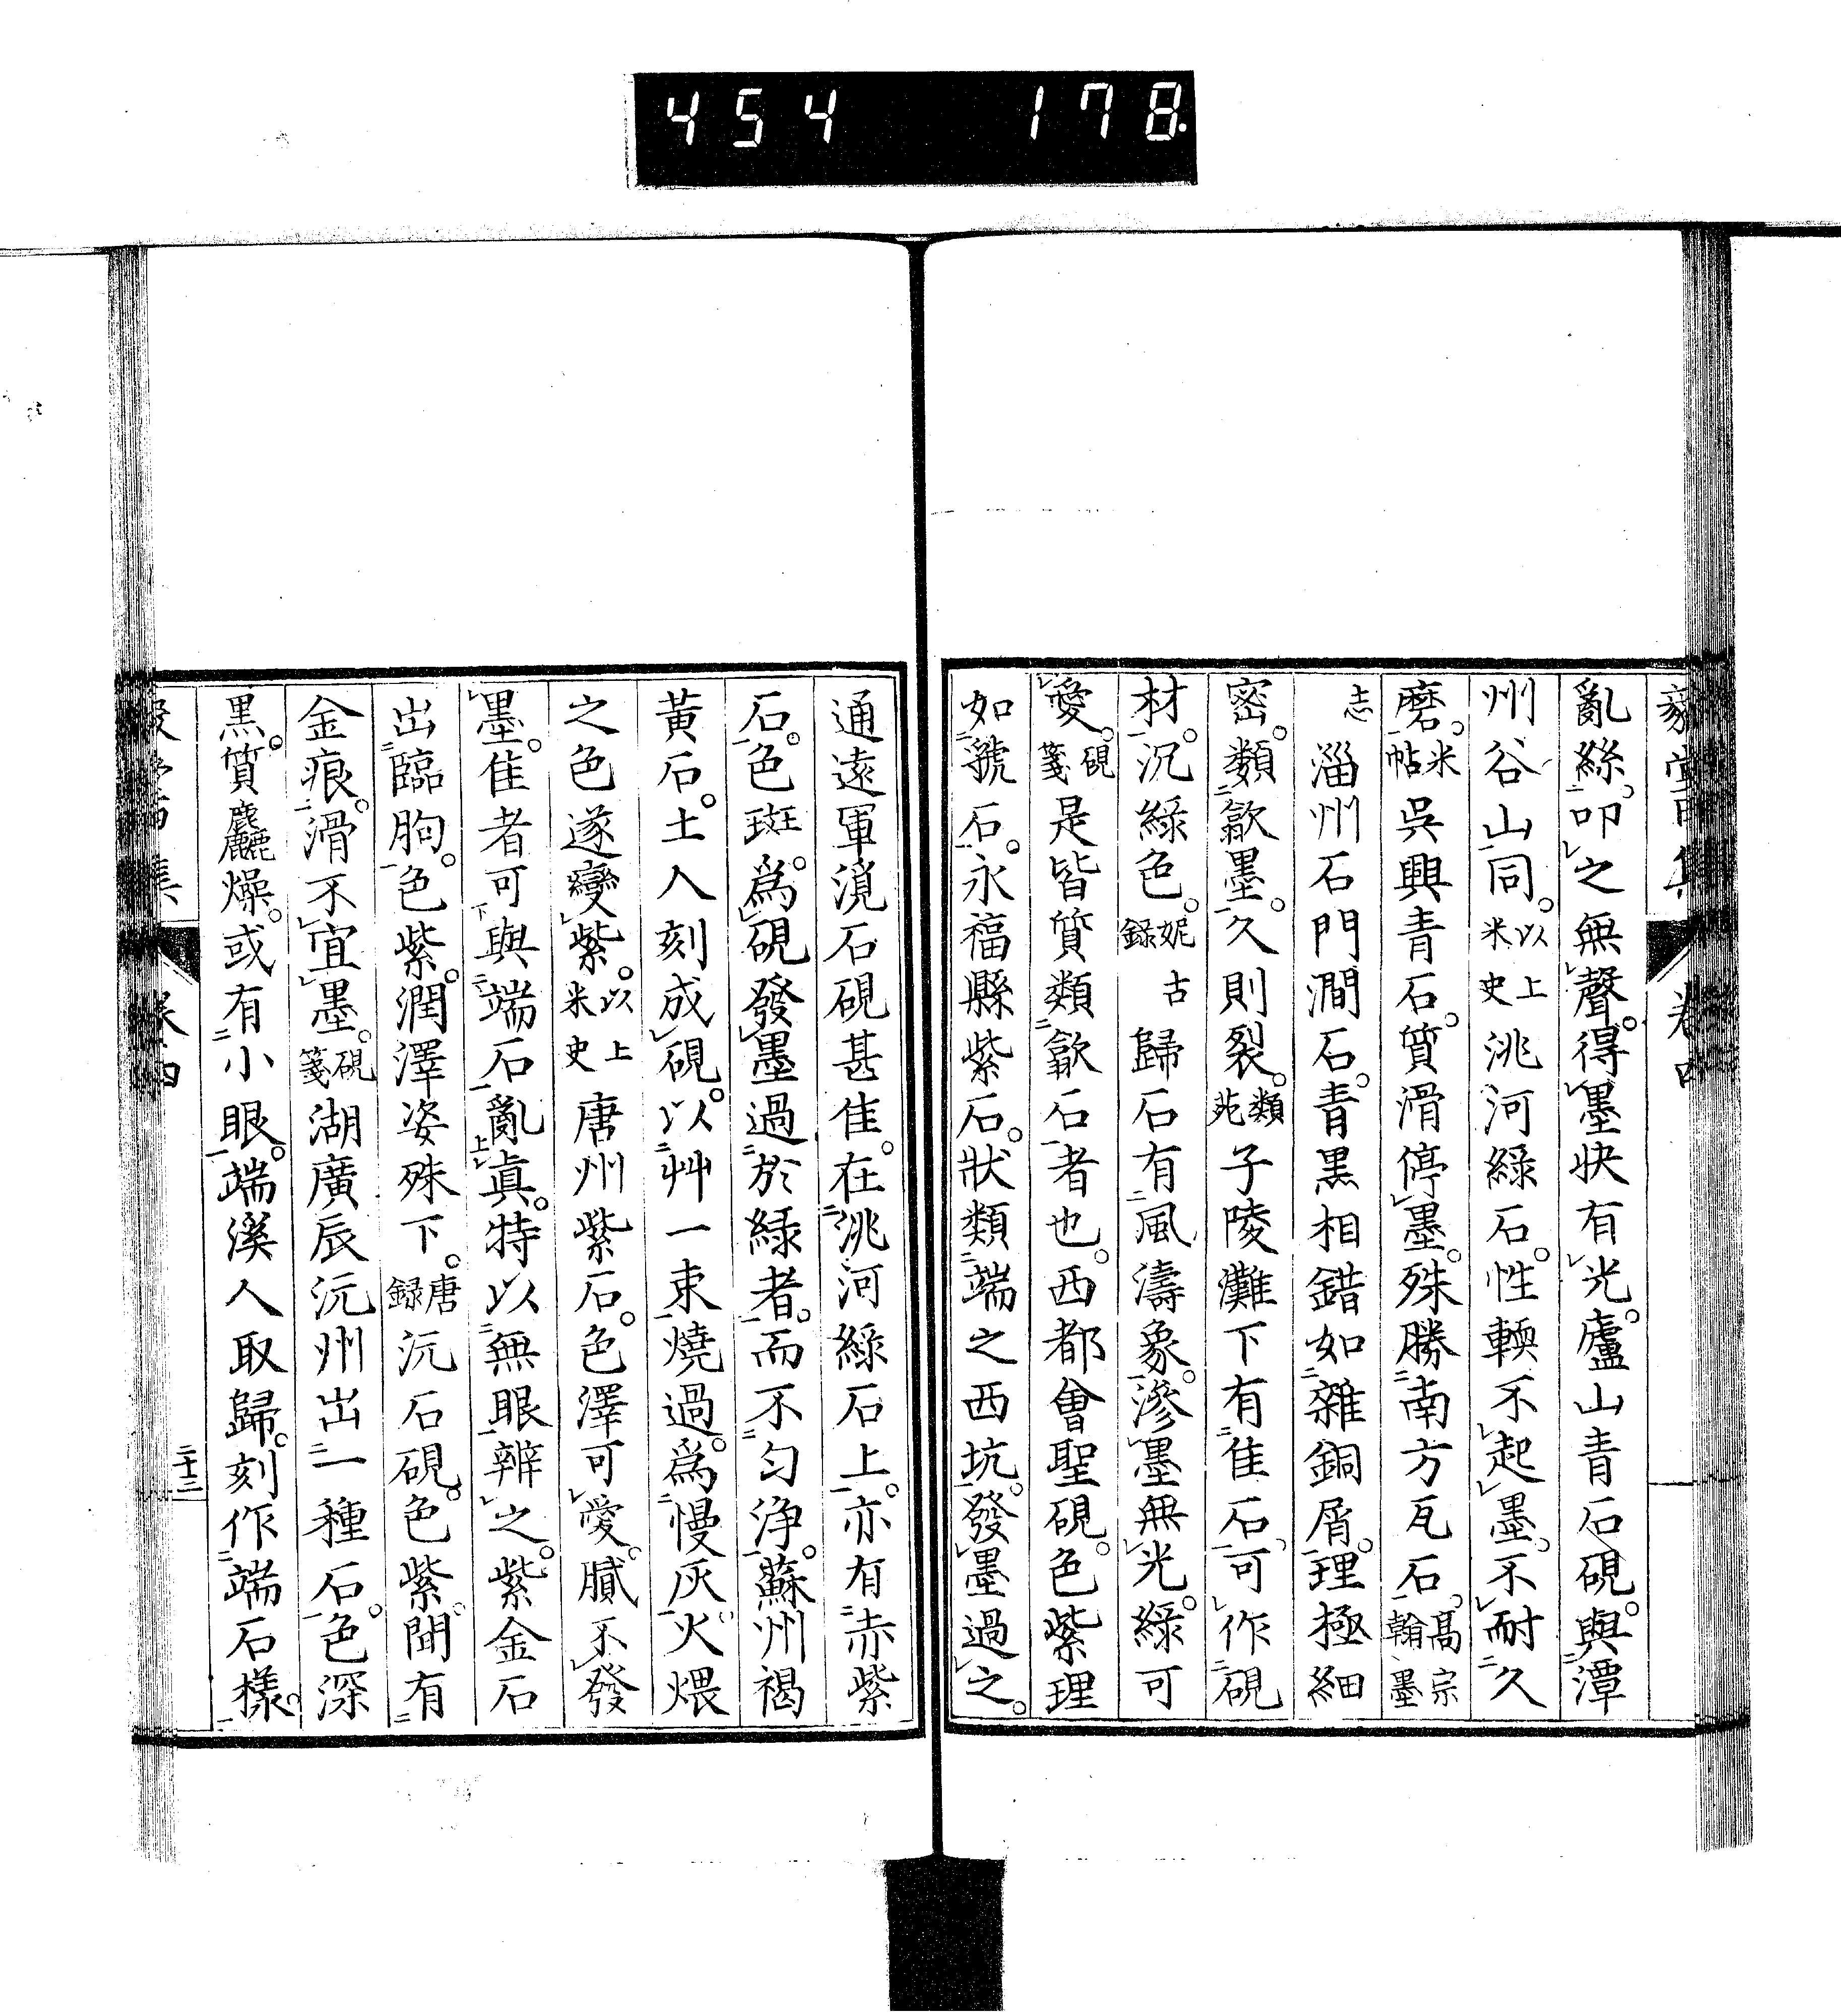 454 178
亂絲。叩之無聲。得墨快有光。廬山青石硯。與潭
州谷山同。以上米史洮河綠石。性輭不起墨。不耐久
磨。米帖吳興青石。質滑停墨。殊勝南方瓦石。高宗翰墨
志淄州石門澗石。青黑相錯如雜銅屑。理極細
密。類歙墨。久則裂。類苑子陵灘下有佳石。可作硯
材。沉綠色。妮古錄歸石有風濤象。滲墨無光。綠可
愛。硯箋是皆質類歙石者也。西都會聖硯。色紫理
如虢石。永福縣紫石。狀類端之西坑。發墨過之。
通遠軍漞石硯甚佳。在洮河綠石上。亦有赤紫
石。色斑。爲硯發墨過於綠者。而不匀淨。蘇州褐
黃石。土人刻成硯。以艸一束燒過。爲慢灰火煨
之色遂變紫。以上米史唐州紫石。色澤可愛。膩不發
墨。佳者可與端石亂真。特以無眼辨之。紫金石
出臨朐。色紫。潤澤姿殊下。唐錄沅石硯。色紫。間有
金痕。滑不宜墨。硯箋湖廣辰沅州出一種石。色深
黑。質麤燥。或有小眼。端溪人取歸。刻作端石樣。
卷四
二十三